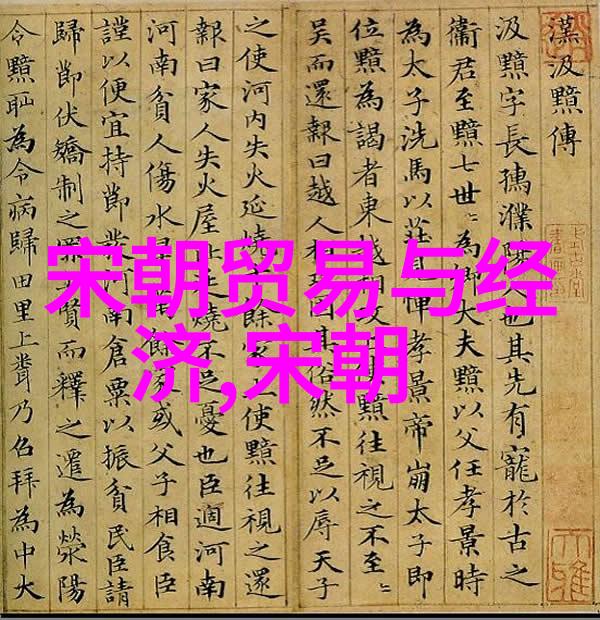 漢汲黯傳
汲黯字長孺濮陽也其先有寵於古之
衞君至黯七世〻為卿大夫黯以父任孝景時
為太子洗馬以莊憚孝景帝崩太子即
位黯為謁者東越相攻黯往視之不至〻
吳而還報曰越人相固其俗然不足以辱天子
之使河內失火延燒餘家上使黯往視之還
報曰家人失火屋比延燒不足憂也臣適河南
河南貧人傷水旱萬餘家或父子相食臣
謹以便宜持節發河南倉粟以振貧民臣請
歸節伏矯制之罪上賢而釋之遷為滎陽
令黯恥為令病歸田里上聞乃召拜為中大
宋朝贸易与经
济,宋朝